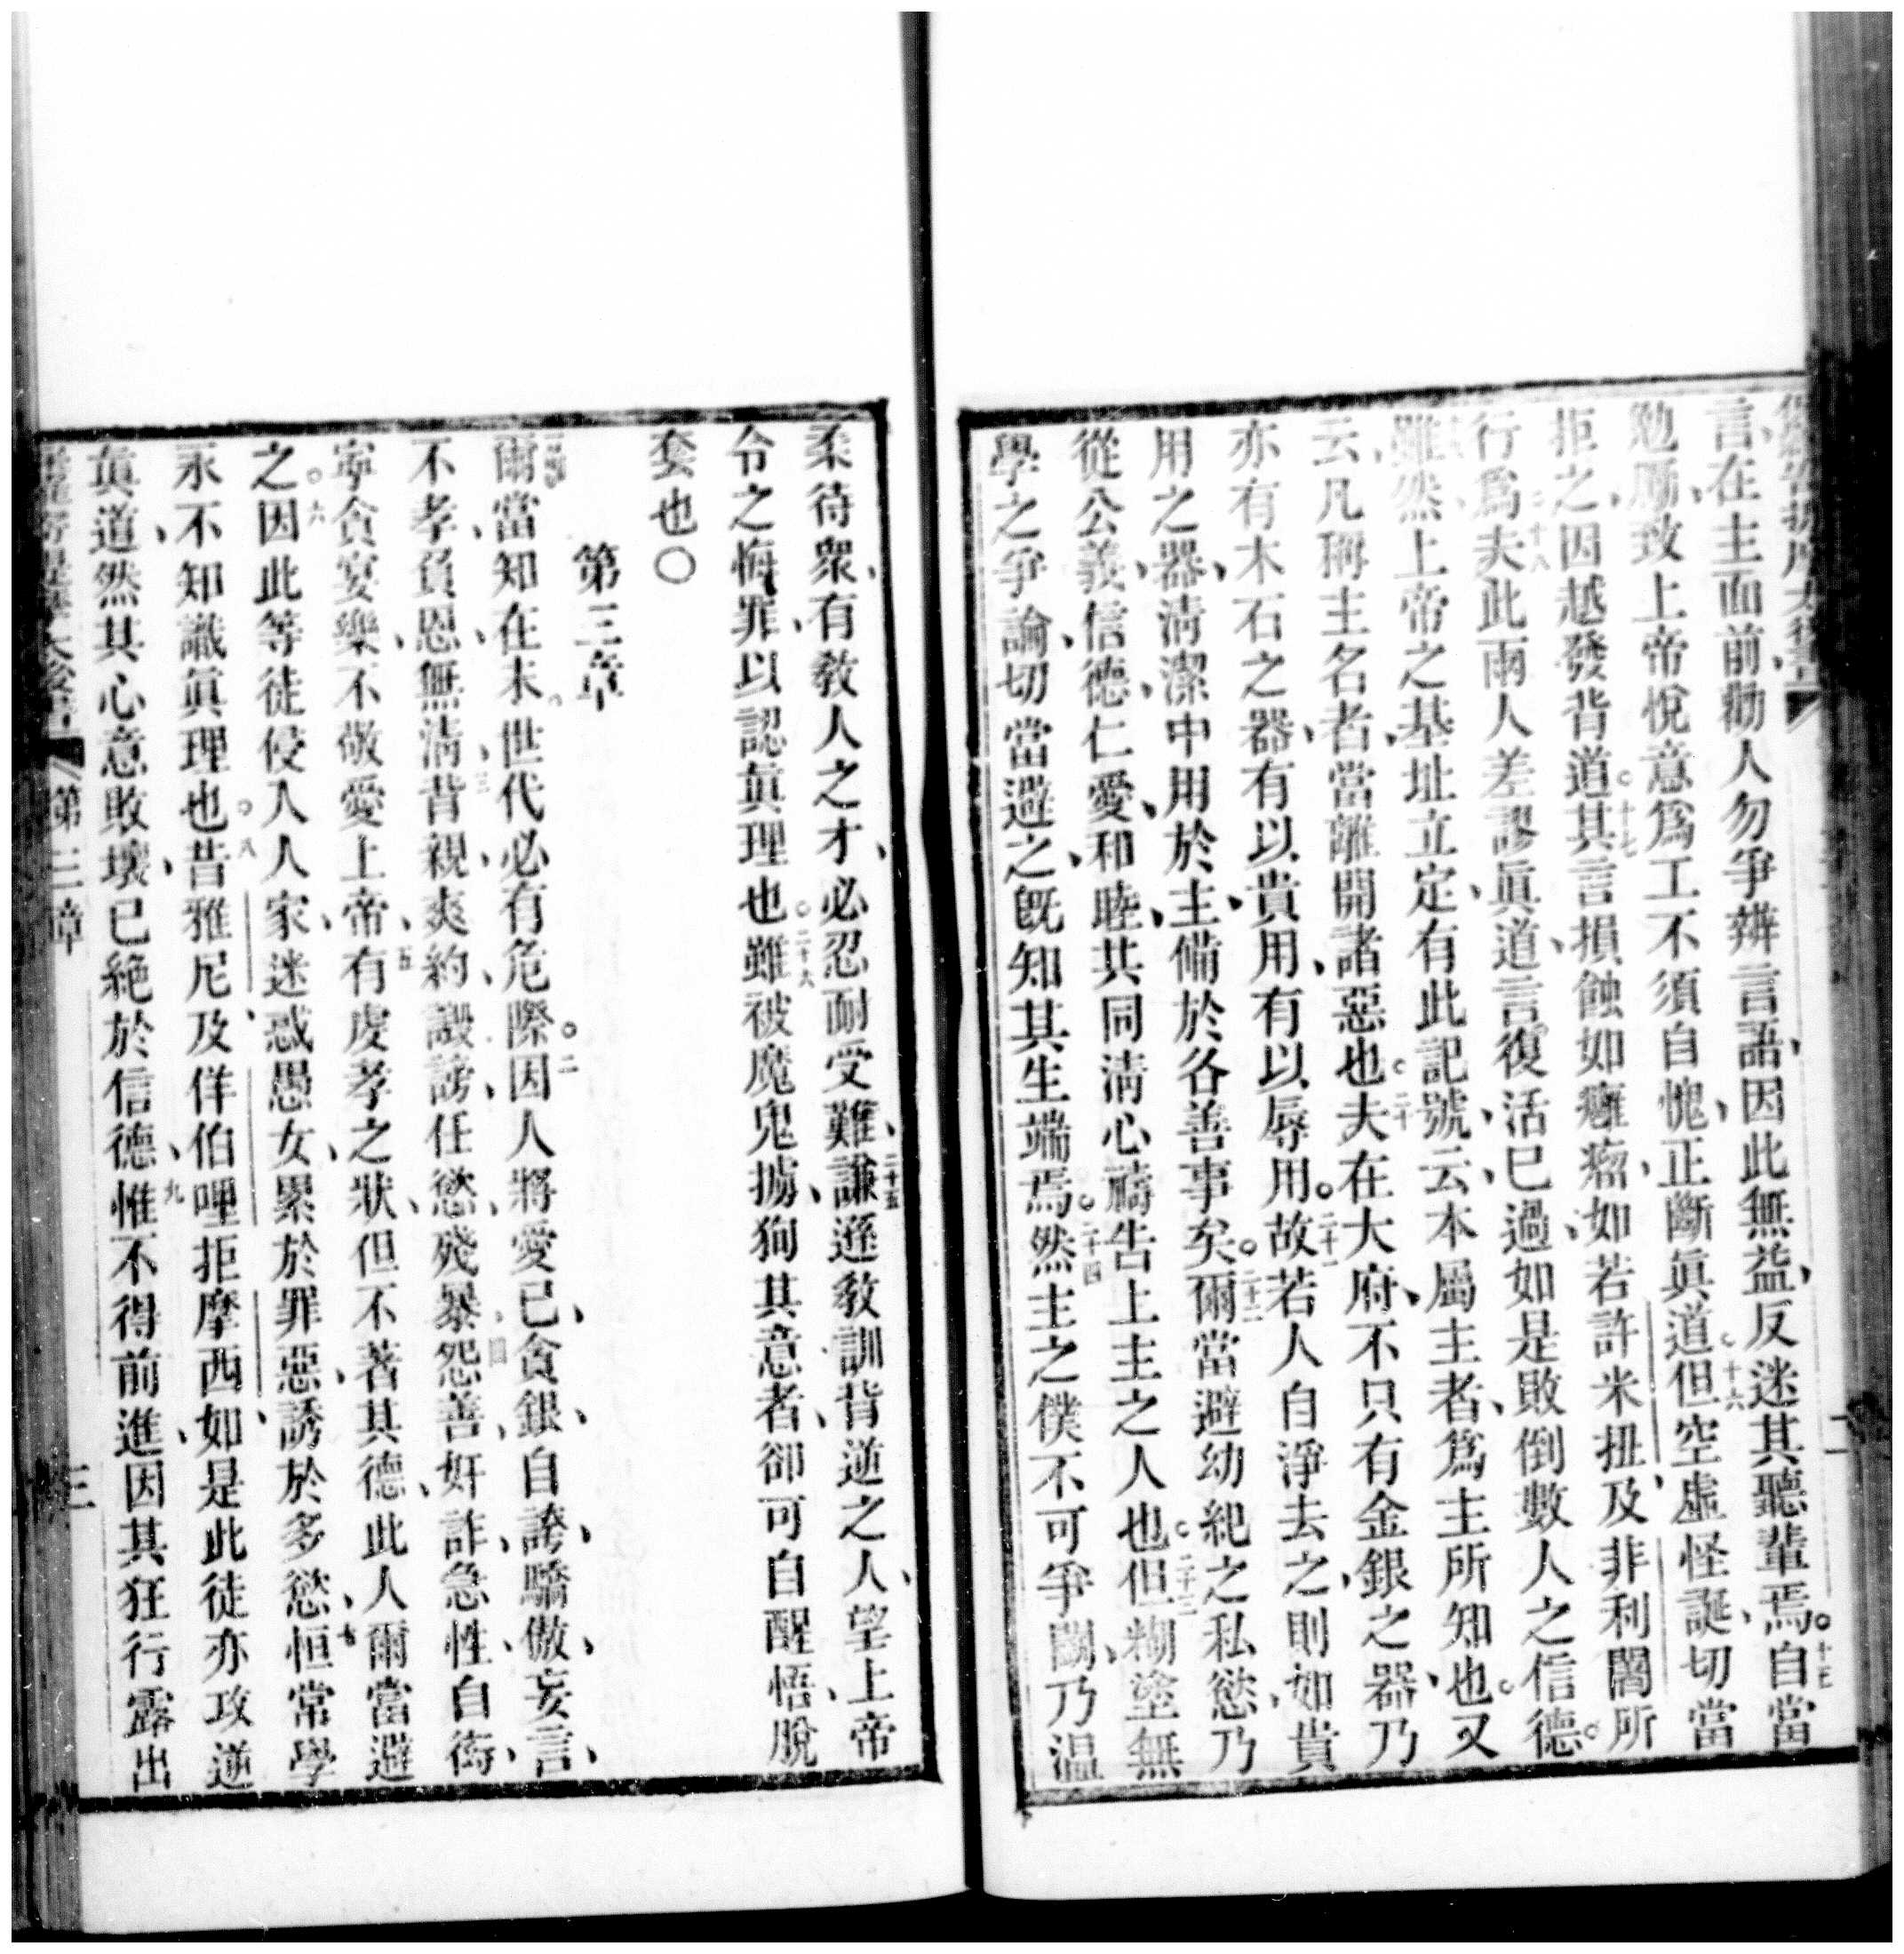 言、在主面前、勸人勿爭辨言語、因此無益、反迷其聽輩焉。十五自當
勉厲、致上帝悅意、爲工不須自愧、正斷眞道。十六但空虛怪誕、切當
拒之、因越發背道。十七其言損蝕如癰瘤、如若許米扭、及非利閣所
行爲、十八夫此兩人差謬眞道、言復活已過、如是敗倒數人之信德。
雖然、上帝之基址立定、有此記號、云、本屬主者、爲主所知也。又
云、凡稱主名者、當離開諸惡也。二十夫在大府、不只有金銀之器、乃
亦有木石之器、有以貴用、有以辱用。二十一故若人自淨去之、則如貴
用之器、清潔中用於主、備於各善事矣。二十二爾當避幼紀之私慾、乃
從公義、信德、仁愛、和睦、共同清心禱告上主之人也。二十三但糊塗無
學之爭論、切當避之、旣知其生端焉。二十四然主之僕不可爭鬬、乃溫
柔待衆、有敎人之才、必忍耐受難、二十五謙遜敎訓背逆之人、望上帝
令之悔罪、以認眞理也。二十六雖被魔鬼擄、狥其意者、卻可自醒悟、脫
套也〇
第三章
爾當知在末世代必有危際。二因人將愛己、貪銀、自誇、驕傲、妄言、
不孝、負恩、無清、三背親、爽約、譭謗、任慾、殘暴、四怨善、奸詐、急性、自衒、
寧貪宴樂、不敬愛上帝、五有虔孝之狀、但不著其德、此人爾當避
之。六因此等徒侵入人家、迷惑愚女、累於罪惡、誘於多慾、七恒常學
永不知識眞理也。八昔雅尼、及佯伯哩拒摩西、如是此徒亦攻逆
眞道、然其心意敗壞、已絕於信德、九惟不得前進、因其狂行露出
第三章
三